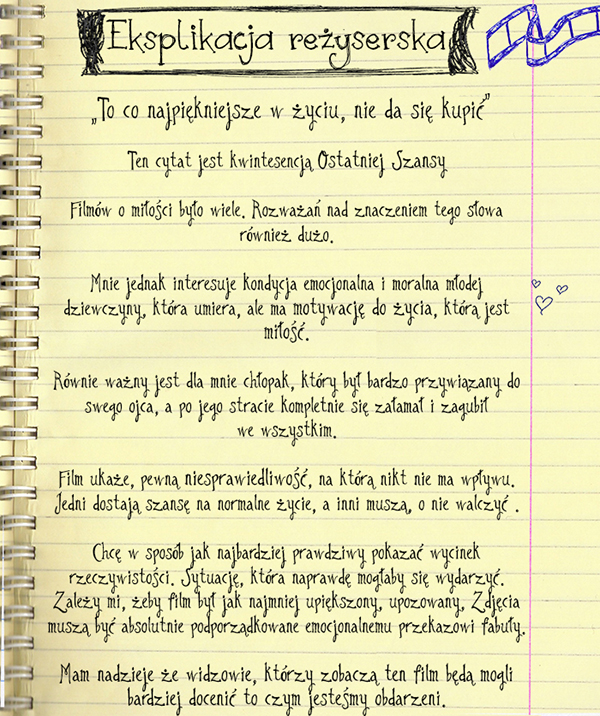 Eksplikacja reżyserska
„To co najpiękniejsze w życiu, nie da się kupić”
Ten cytat jest kwintesencją Ostatniej Szansy
Filmów o miłości było wiele. Rozważań nad znaczeniem tego słowa
również dużo.
Mnie jednak interesuje kondycja emocjonalna i moralna młodej
dziewczyny, która umiera, ale ma motywację do życia, którą jest
miłość.
Równie ważny jest dla mnie chłopak, który był bardzo przywiązany do
swego ojca, a po jego stracie kompletnie się załamał i zagubił
we wszystkim.
Film ukaże, pewną niesprawiedliwość, na którą nikt nie ma wpływu.
Jedni dostają szansę na normalne życie, a inni muszą, o nie walczyć .
Chcę w sposób jak najbardziej prawdziwy pokazać wycinek
rzeczywistości. Sytuację, która naprawdę mogłaby się wydarzyć.
Zależy mi, żeby film był jak najmniej upiększony, upozowany, Zdjęcia
muszą być absolutnie podporządkowane emocjonalnemu przekazowi fabuły.
Mam nadzieje że widzowie, którzy zobaczą ten film będą mogli
bardziej docenić to czym jesteśmy obdarzeni.